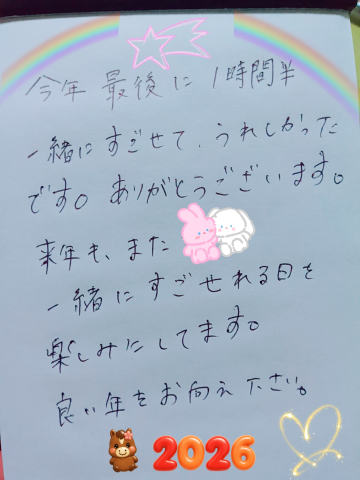 今年 最後に 1時間半
一緒にすごせて、うれしかった
です。ありがとうございます。
来年も、また
一緒にすごせれる日を
楽しみにしてます。
良い年をお向え下さい。
2026